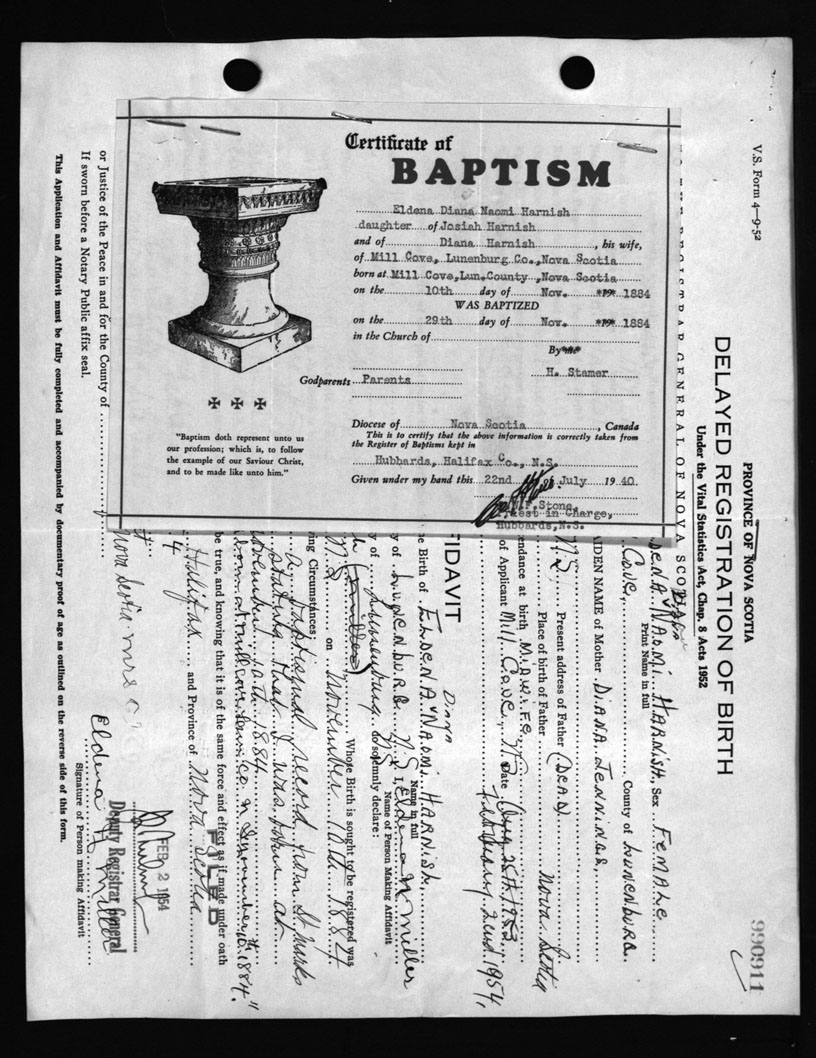 Certificate of
BAPTISM
Eldena Diana Naomi Harnish
daughter of Josiah Harnish
and of Diana Harnish, his wife,
of Mill Cove, Lunenburg Co., Nova Scotia
born at Mill Cove, Lun.County, Nova Scotia
on the 10th day of Nov. 1884
WAS BAPTIZED
on the 29th day of Nov. 1884
in the Church of
By
H. Stamer
Godparents Parents
Diocese of Nova Scotia, Canada
This is to certify that the above information is correctly taken from
the Register of Baptisms kept in
Hubbards, Halifax Co., N.S.
Given under my hand this 22nd July 1940.
Stone,
in Charge,
Hubbards, N.S.
"Baptism doth represent unto us
our profession; which is, to follow
the example of our Saviour Christ,
and to be made like unto him."
V.S. Form 4—9-52
990911
PROVINCE OF NOVA SCOTIA
DELAYED REGISTRATION OF BIRTH
Under the Vital Statistics Act, Chap. 8 Acts 1952
REGISTRAR GENERAL OF NOVA SCOTIA
Diana
NAOMI HARNISH Sex FEMALE
Print Name in full
Cove, County of LUNENBURG
AIDEN NAME of Mother DIANA JENNINGS
N.S. Present address of Father (DEAD)
Place of birth of Father Nova Scotia
endance at birth MIDWIFE
of Applicant Mill Cove, N.S. Date Aug 25th 1953
February 2nd 1954,
FIDAVIT
Diana
e Birth of ELDENA NAOMI HARNISH
Name in full
y of LUNENBURG N.S. I, Eldena N Miller
Name of Person Making Affidavit
y of Lunenburg N.S. do solemnly declare:
h (Miller) Whose Birth is sought to be registered was
N.S on November 10th 1884
ing Circumstances:
a baptismal record from St Marks
stating that I was born at
November 10th 1884
born at mill cove November 10th 1884."
be true, and knowing that it is of the same force and effect as if made under oath
FILED
Halifax and Province of Nova Scotia
4
FEB 2 1954
Deputy Registrar General
Nova Scotia Mrs
Eldena N Miller
Signature of Person making Affidavit
or Justice of the Peace in and for the County of
If sworn before a Notary Public affix seal.
This Application and Affidavit must be fully completed and accompanied by documentary proof of age as outlined on the reverse side of this form.